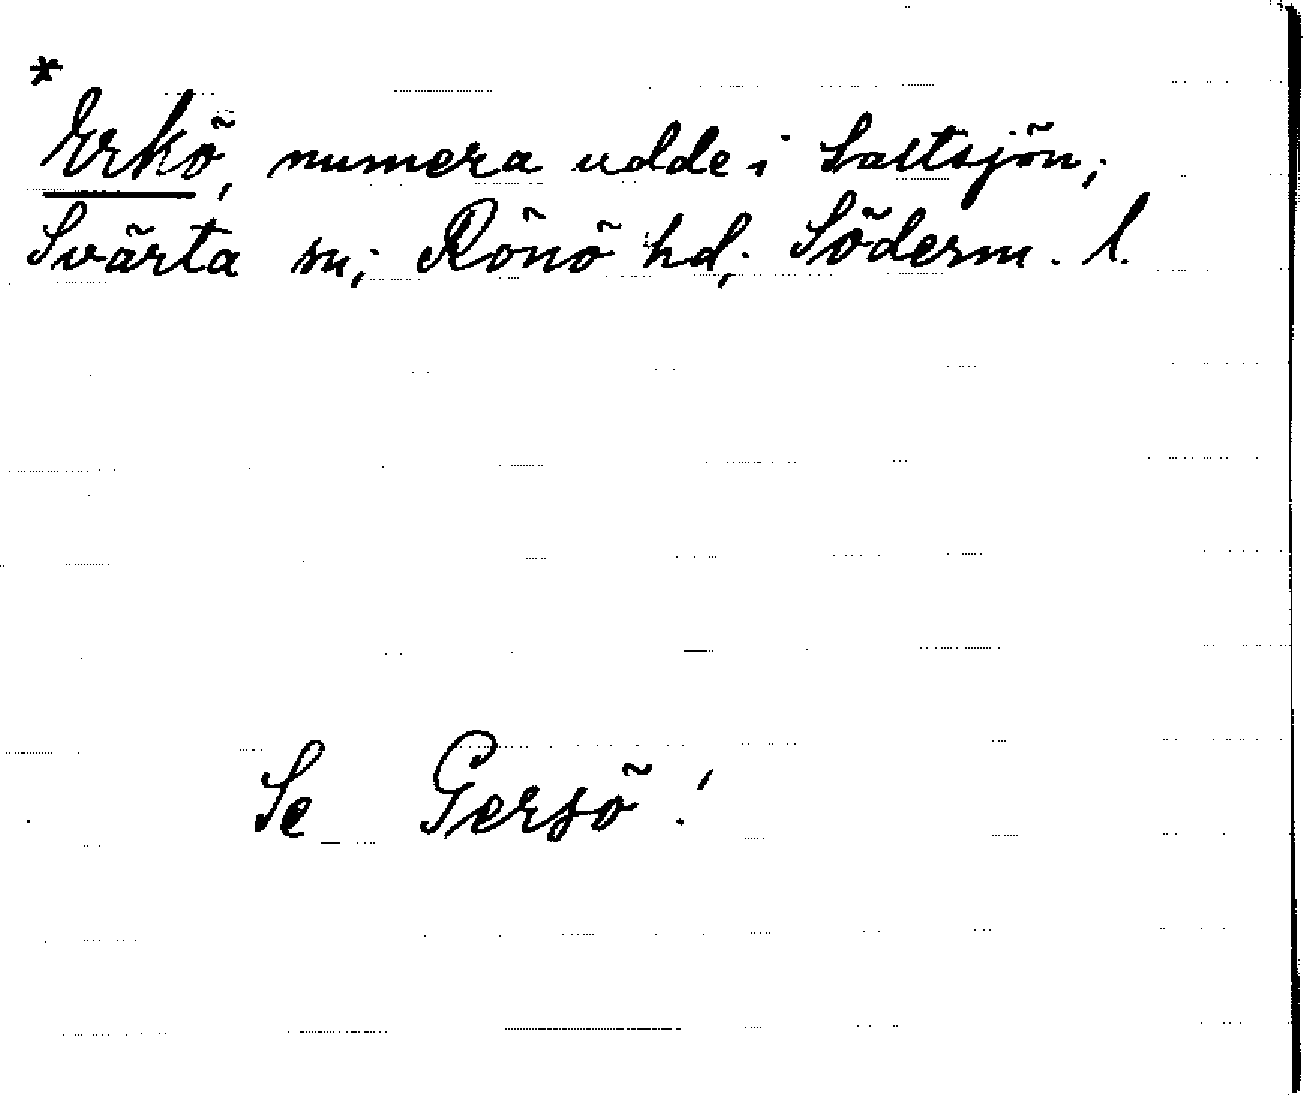 *
Erkö, numera udde i Saltsjön;
Svärta sn; Rönö hd; Söderm. l.
Se Gersö!